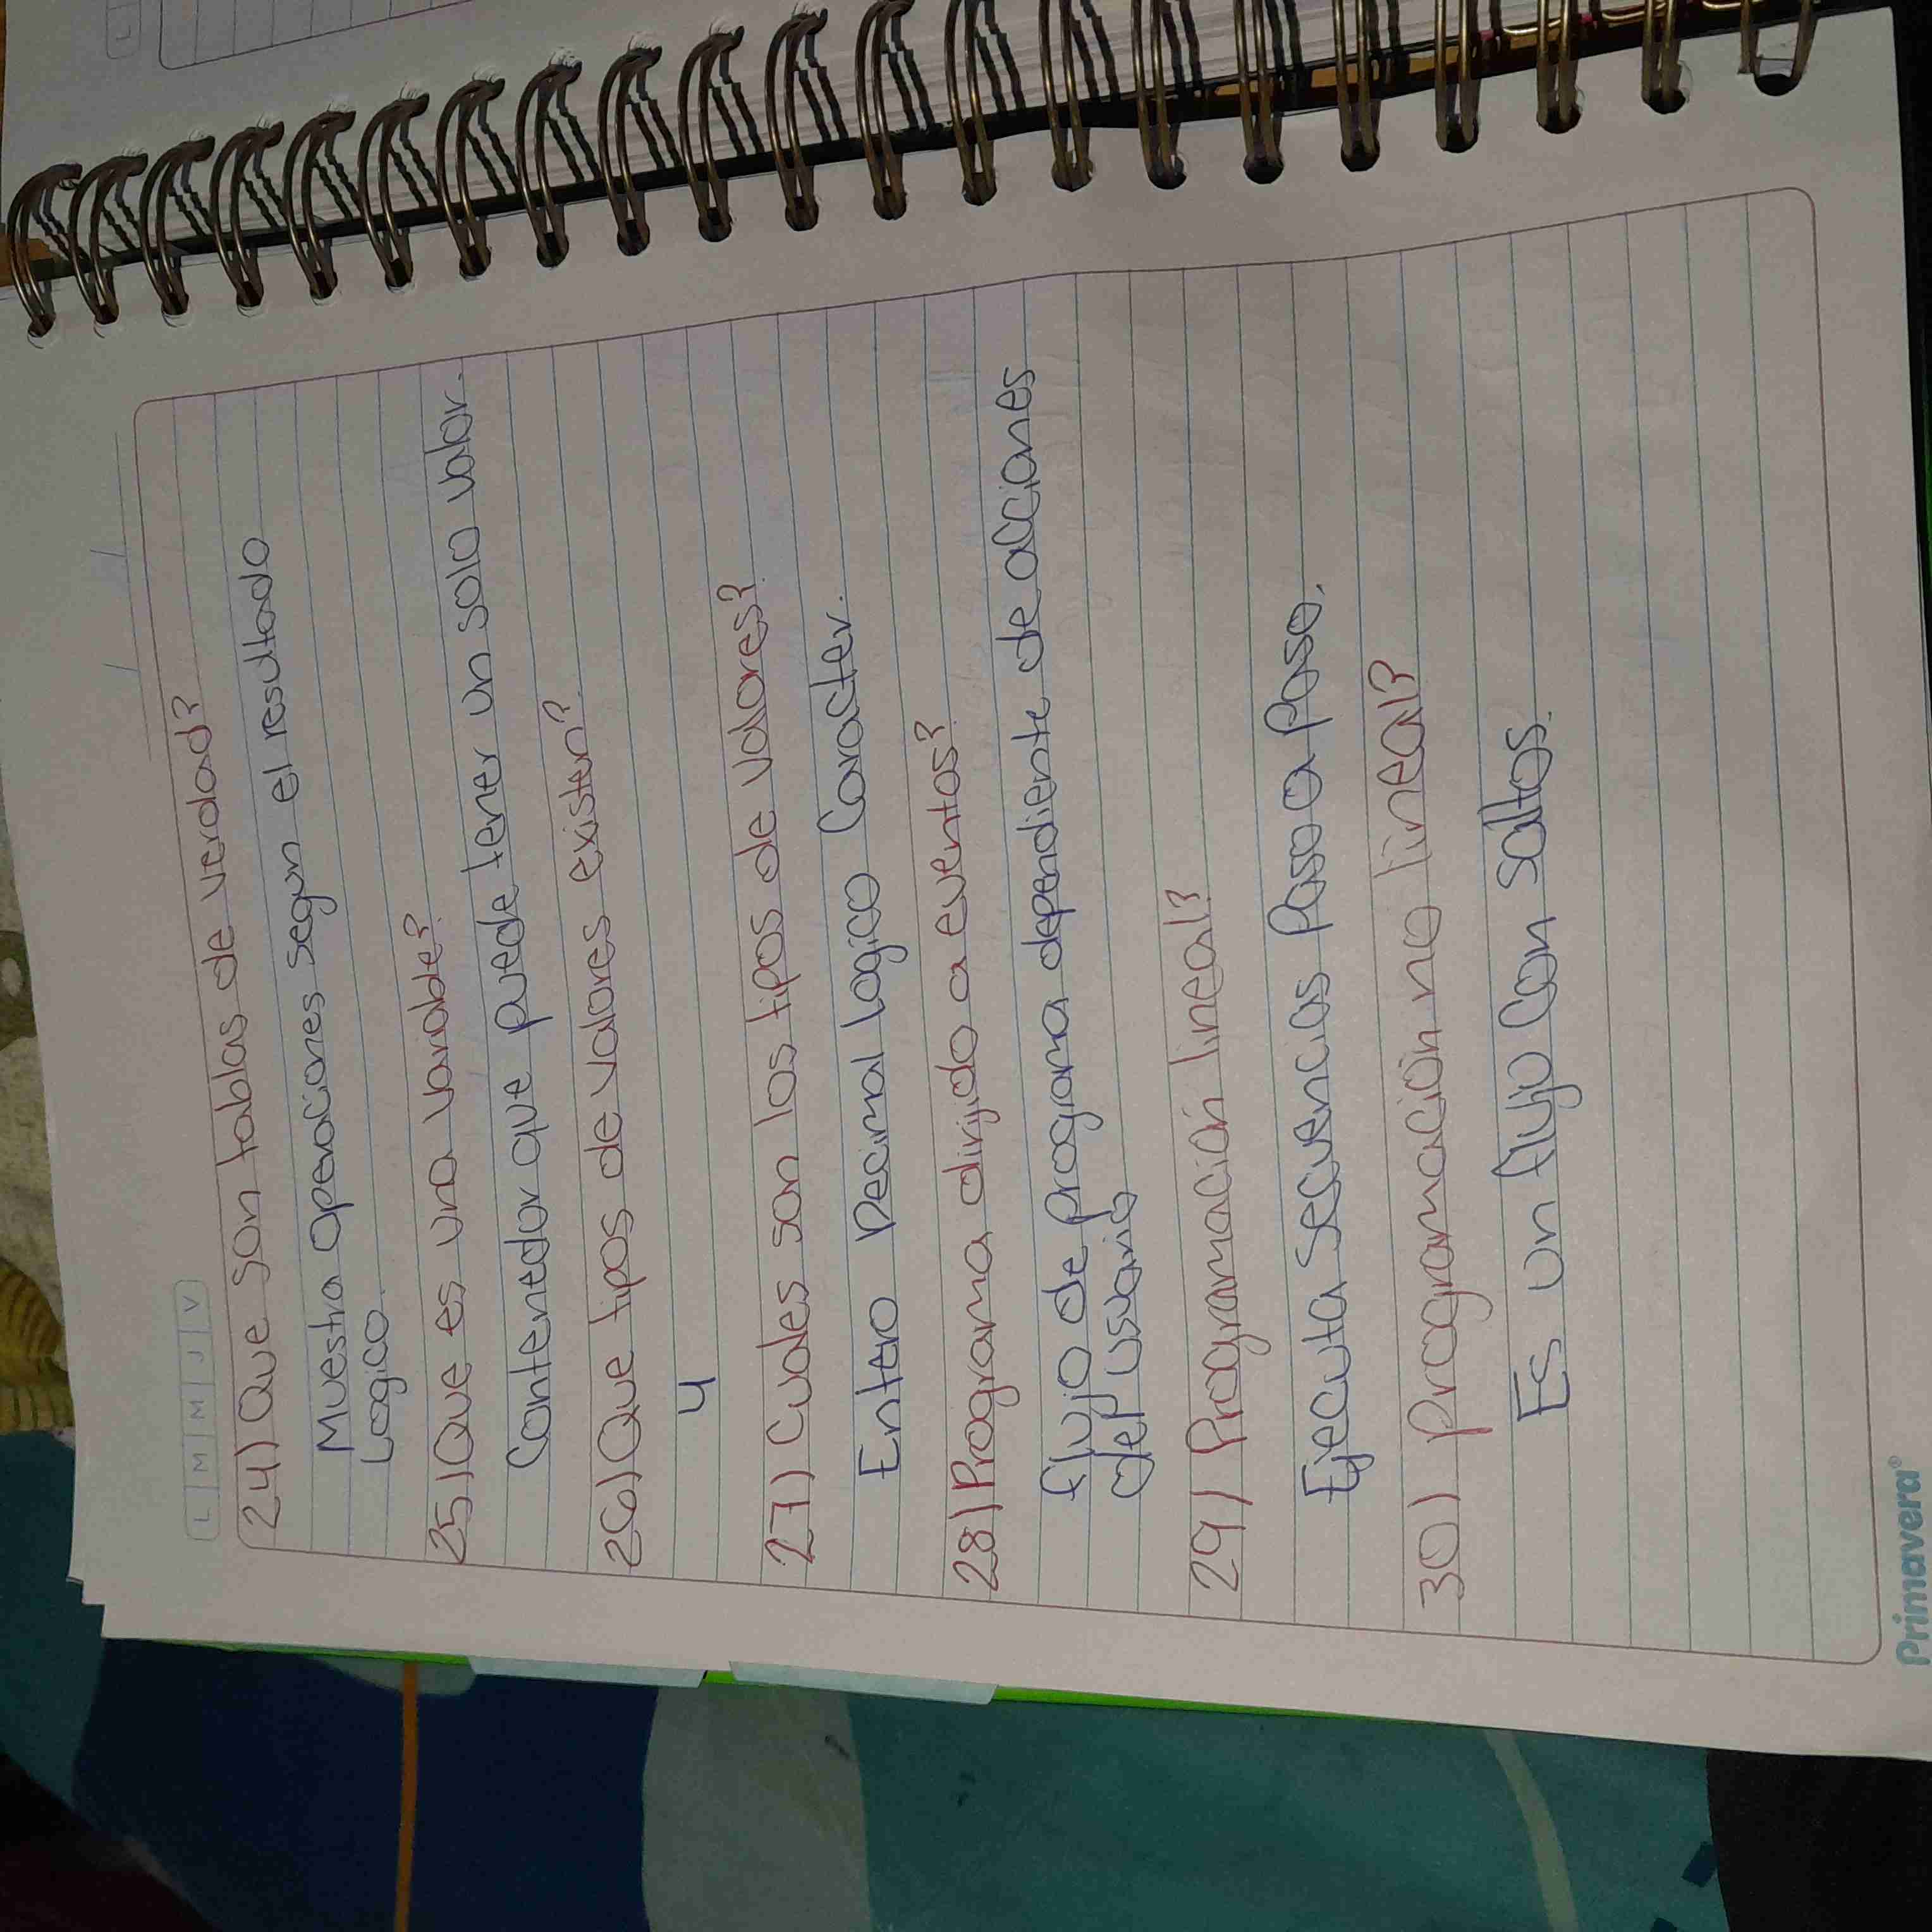 L M M J V
24) Que son tablas de verdad?
Muestra Operaciones segun el resultado
Logico.
25) Que es una variable?
Contenedor que puede tener un solo valor.
26) Que tipos de valores existen?
4
27) Cuales son los tipos de valores?
Entero Decimal Logico Caracter.
28) Programa dirigido a eventos?
flujo de programa dependiente de acciones
del usuario
29) Programación lineal?
Ejecuta secuencias Paso a Paso.
30) Programación no lineal?
Es un flujo Con saltos.
Primavera®